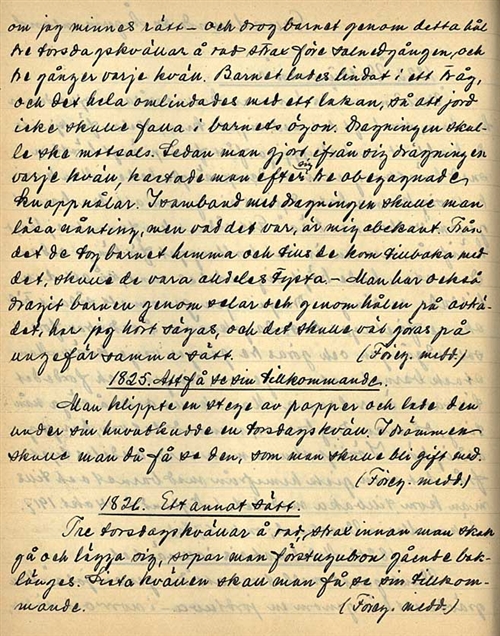 om jag minnes rätt – och drog barnet genom detta hål
tre torsdagskvällar å rad strax före solnedgången, och
tre gånger varje kväll. Barnet lades lindat i ett tråg,
och det hela omlindades med ett lakan, så att jord
icke skulle falla i barnets ögon. Dragningen skul-
le ske motsols. Sedan man gjort ifrån sig dragningen
varje kväll, kastade man efter sig tre obegagnade
knappnålar. I samband med dragningen skulle man
läsa nånting, men vad det var, är mig obekant. Från
det de tog barnet hemma och tills de kom tillbaka med
det, skulle de vara alldeles tysta – Man har också
dragit barnen genom selar och genom hålen på avträ-
det, har jag hört sägas, och det skulle väl göras på
ungefär samma sätt. (Föreg. medd.)
1825. Att få se sin tillkommande.
Man klippte en stege av papper och lade den
under sin huvudkudde en torsdagskväll. I drömmen
skulle man då få se den, som man skulle bli gift med.
(Föreg. medd.)
1826. Ett annat sätt.
Tre torsdagskvällar å rad, strax innan man skall
gå och lägga sig, sopar man förstugubron gående bak-
länges. Sista kvällen skall man få se sin tillkom-
mande. (Föreg. medd.)